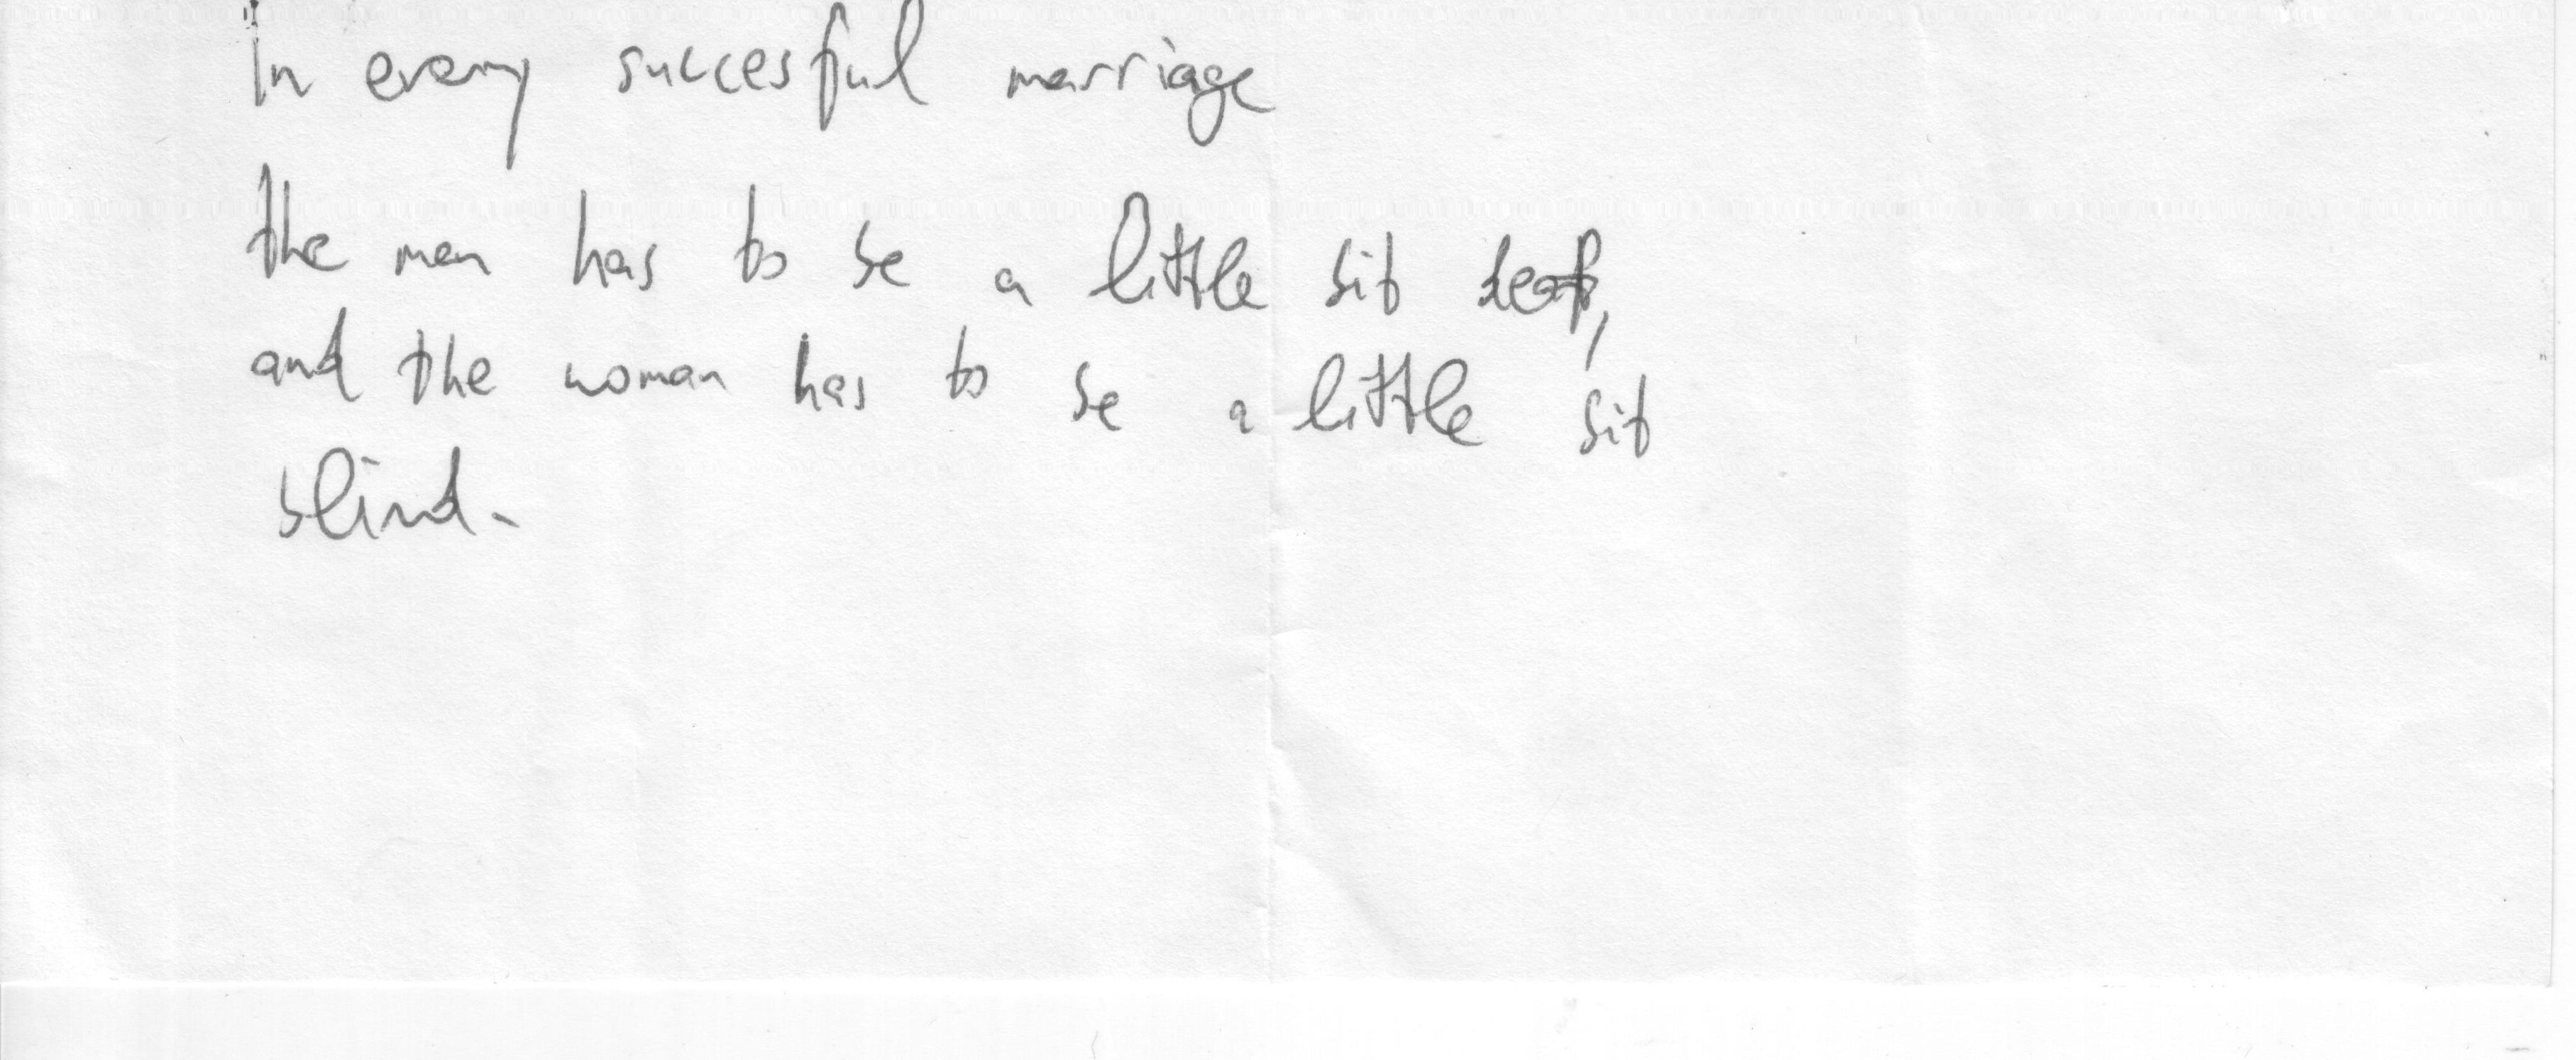 In every succesful marriage
the man has to be a little bit deaf,
and the woman has to be a little bit
blind.